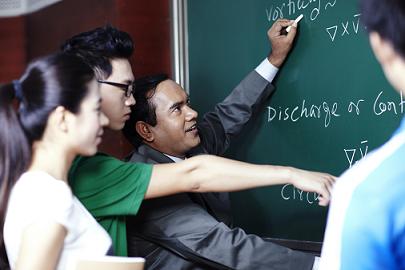 Vorticity ~
∇ × V̄
Discharge or Cont
∇ V̄
Circ